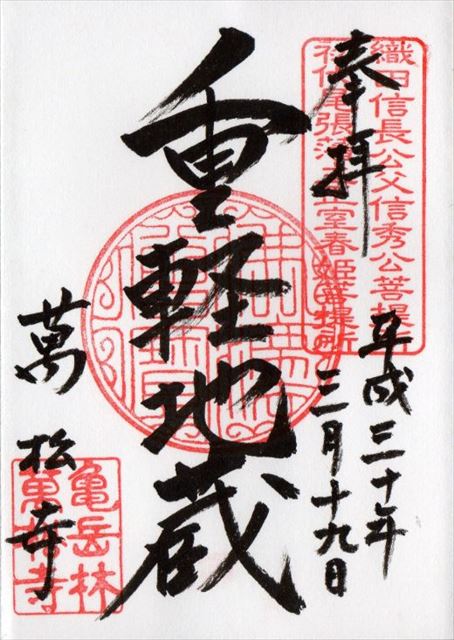 奉拝
織田信長公父信秀公菩提所
初代尾張藩主正室春姫菩提所
平成三十年
三月十九日
重軽地蔵
萬松寺
亀岳林
萬松寺